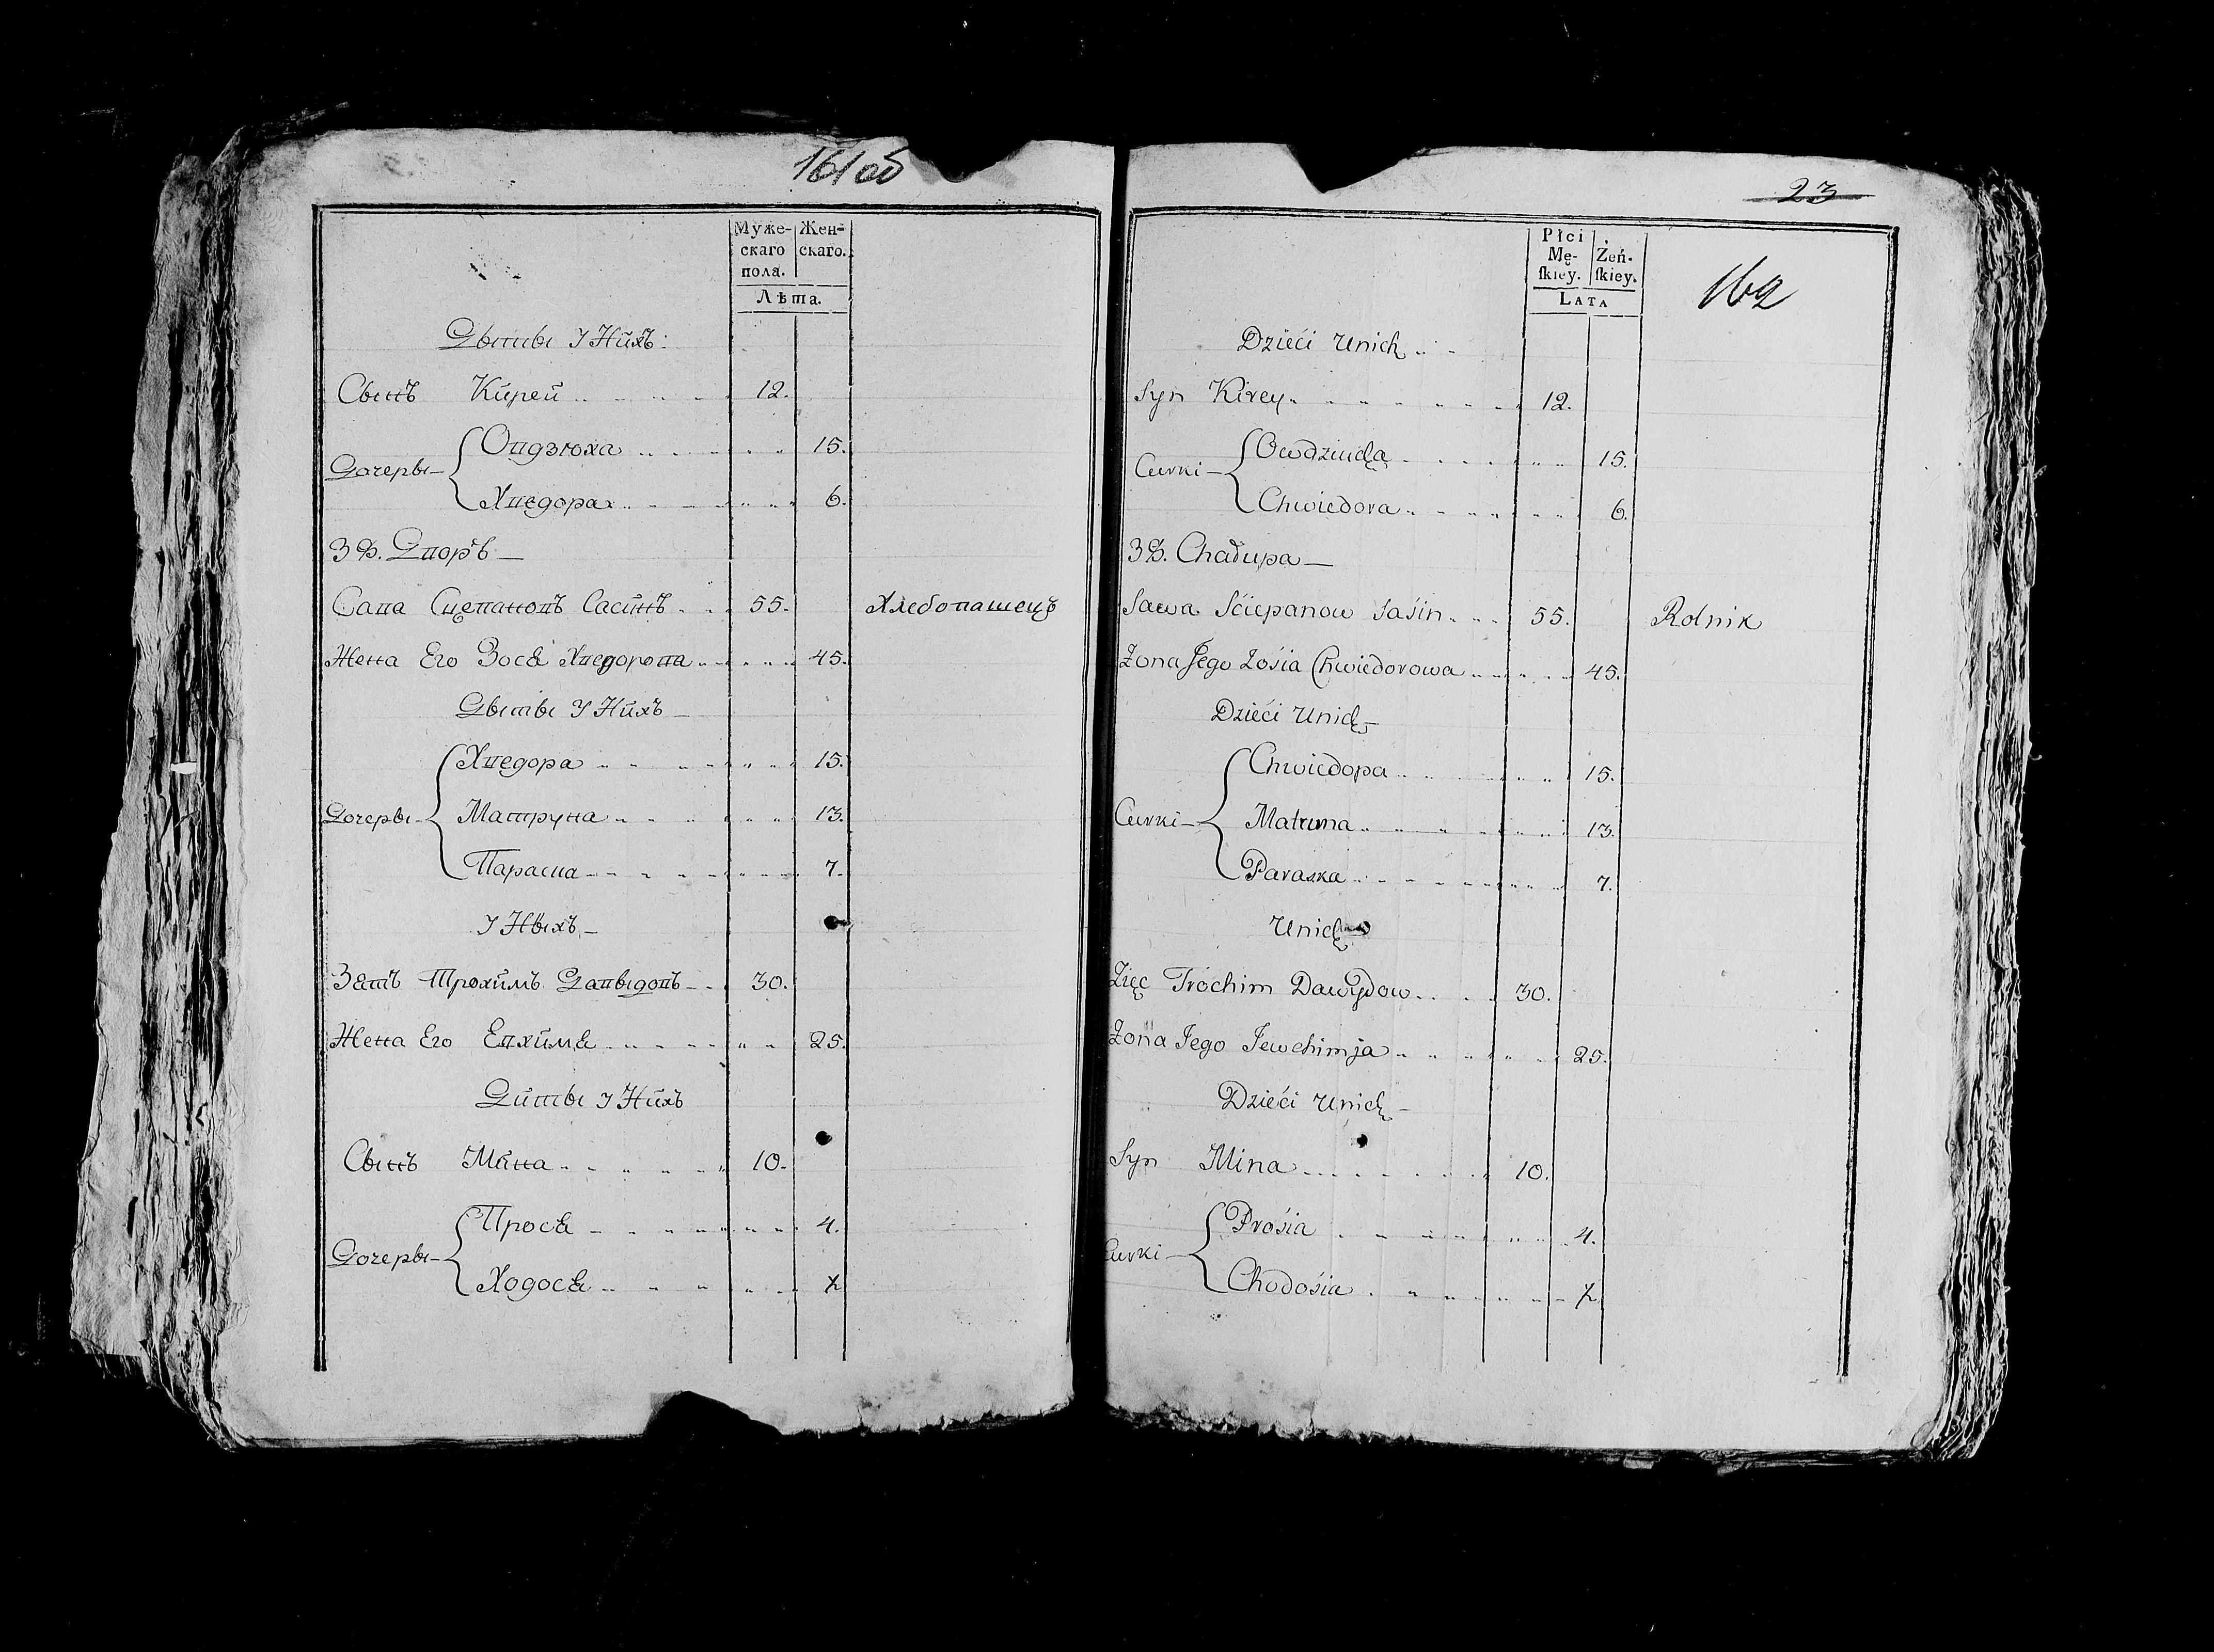 161 об
Муже-
скаго
пола.
Жен-
скаго.
Лѣта.
Дѣтьы У Нихъ:
Сынъ Кирей 12.
Дочеры
Овдзюха 15.
Хведора 6.
Дворъ
Сава Сцепановъ Сасинъ 55. Хлебопашецъ
Жена Его Зося Хведорова 45.
Дѣтьы У Нихъ
Хведора 15.
Дочеры
Матруна 13.
Параска 7.
У Ныхъ
Зять Трохимъ Давыдовъ 30.
Жена Его Евхимя 25.
Диты У Нихъ
Сынъ Мина 10.
Прося 4.
Дочеры
Ходося
23
Płci
Mę-
ſkiey.
Żeń-
ſkiey.
LATA
162
Dzieći Unich
Syn Kirey 12.
Owdziucha 15.
Curki
Chwiedora 6.
Chałupa
Sawa Sćiepanow Saśin 55. Rolnik
Żona Jego Zośia Chwiedorowa 45.
Dzieći Unich
Chwiedopa 15.
Curki
Matruna 13.
Paraska 7.
Unich
Zięc Trochim Dawydow 30.
Żona Jego Jewchimja 25.
Dzieći Unich
Syn Mina 10.
Prośia 4.
Curki
Chodośia